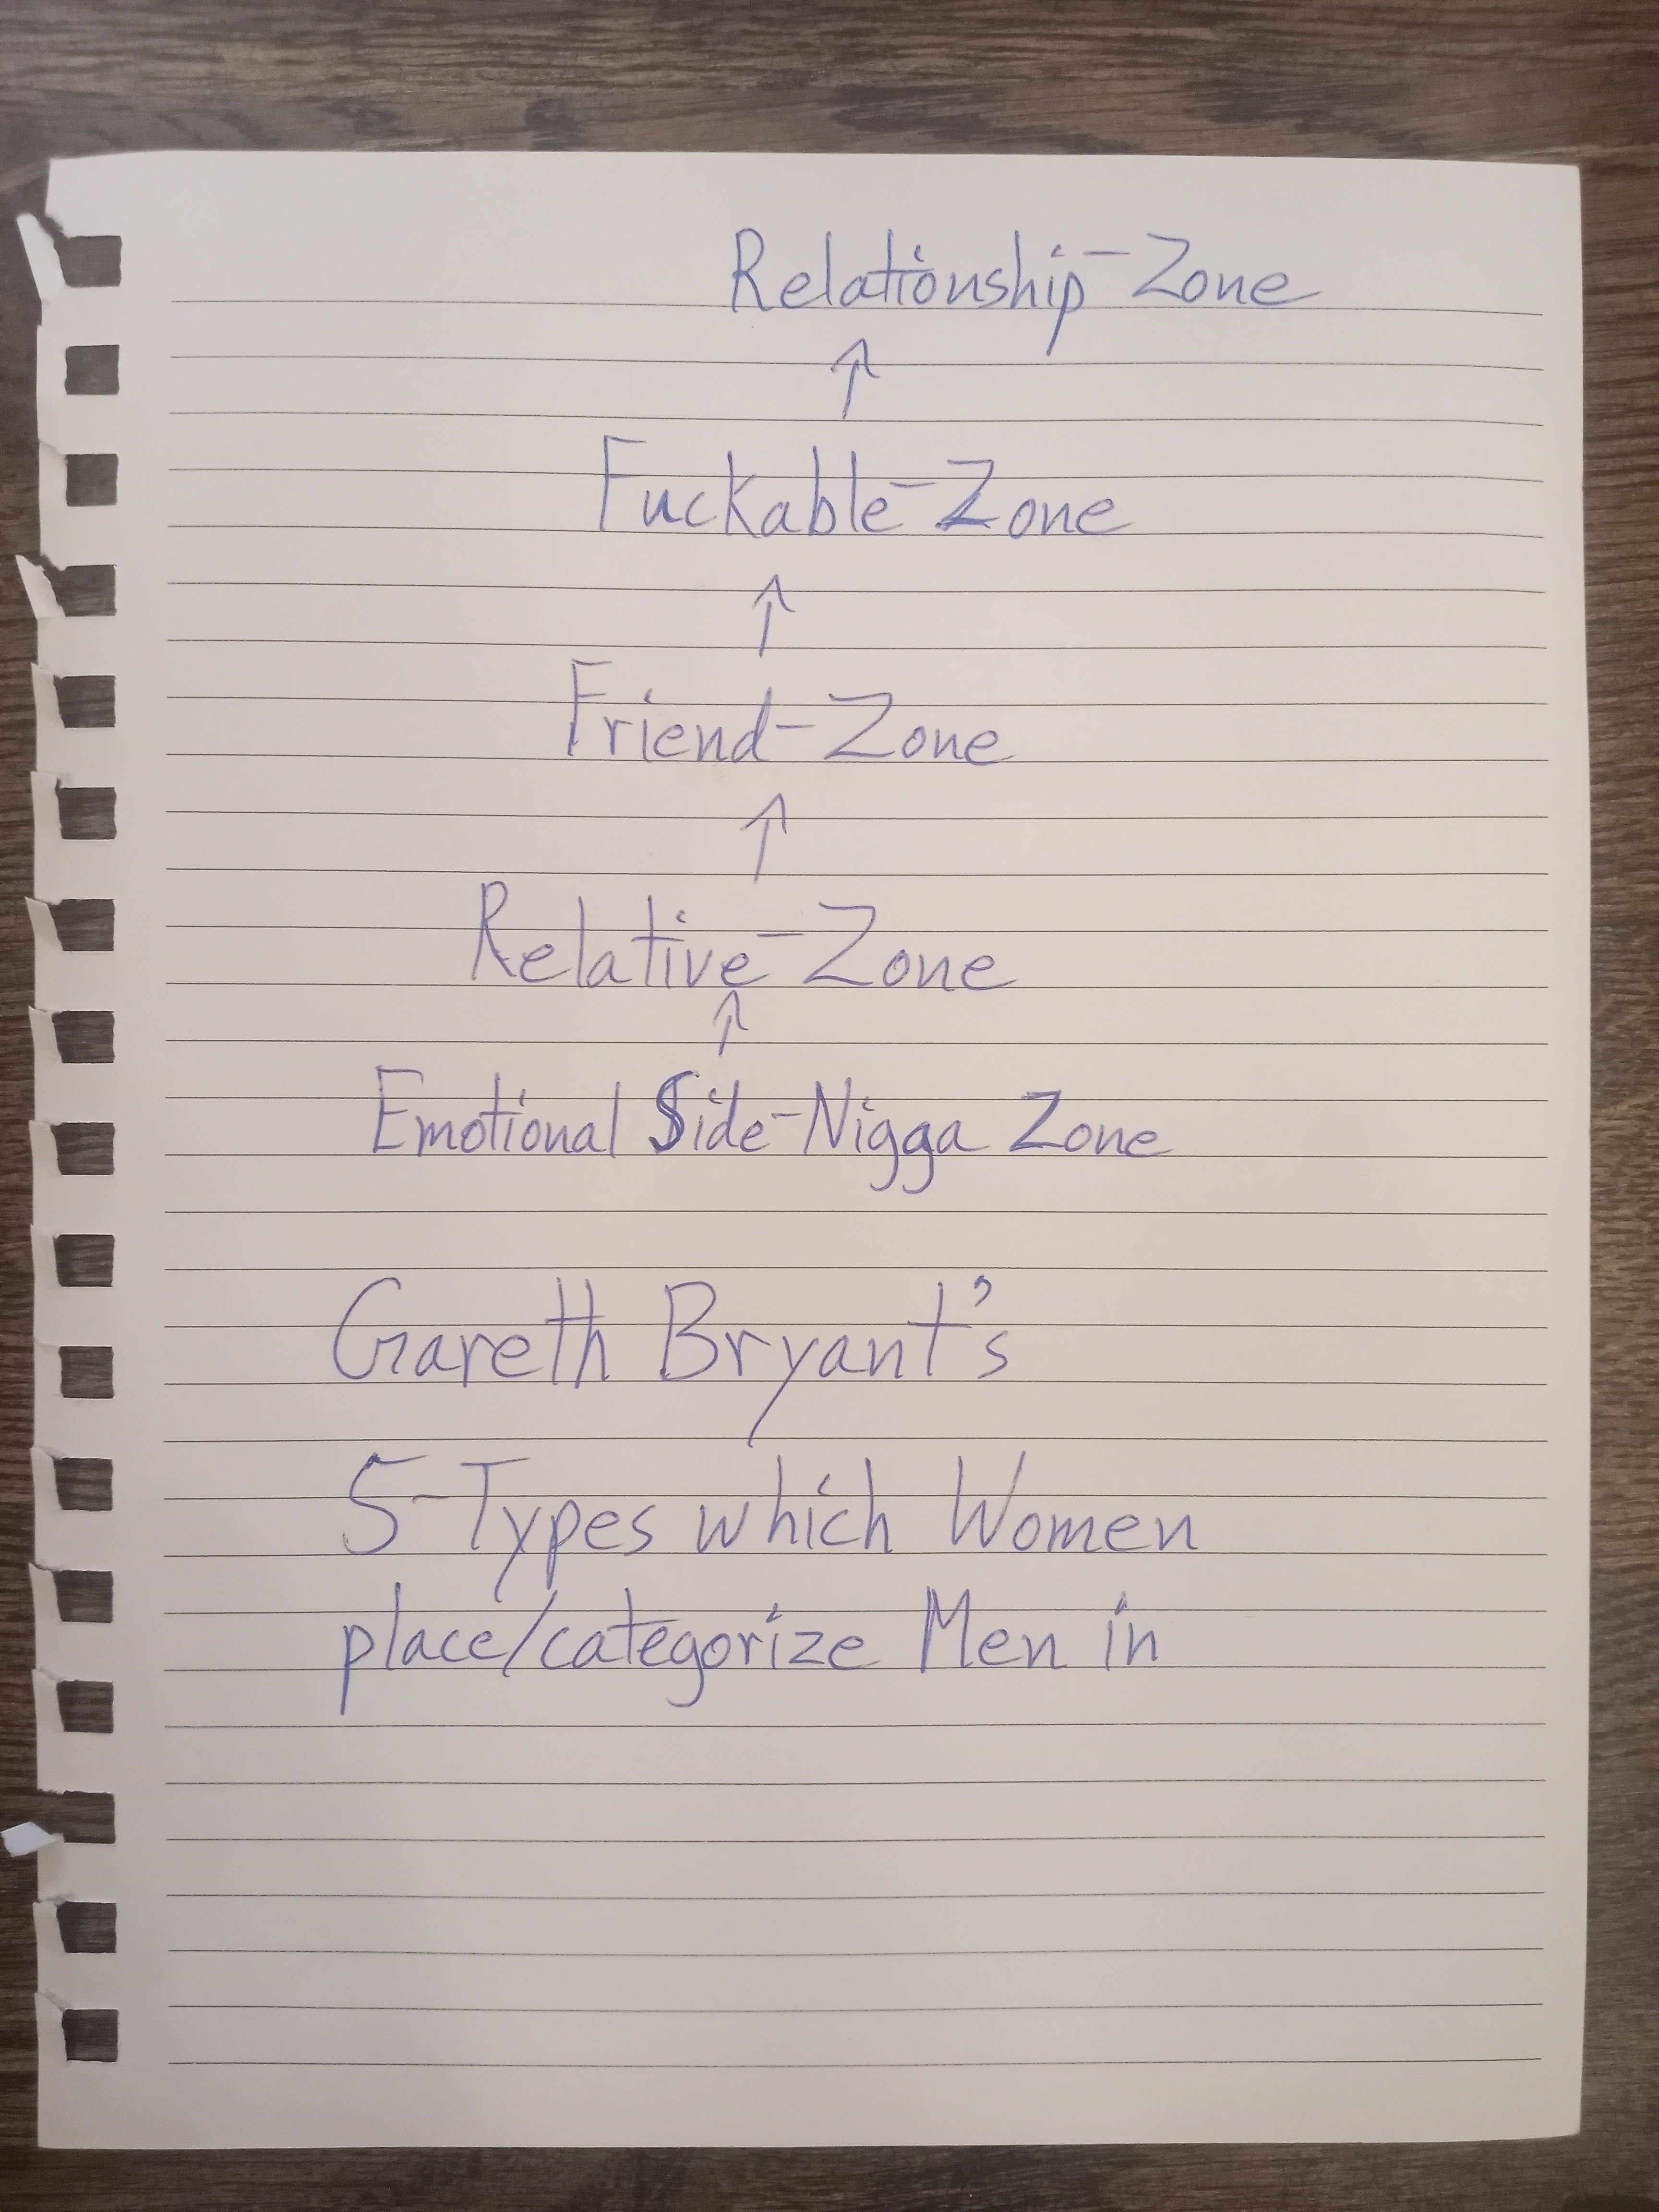 Relationship-Zone
↑
Fuckable-Zone
↑
Friend-Zone
↑
Relative-Zone
↑
Emotional Side-Nigga Zone
Gareth Bryant's
5-Types which Women
place/categorize Men in